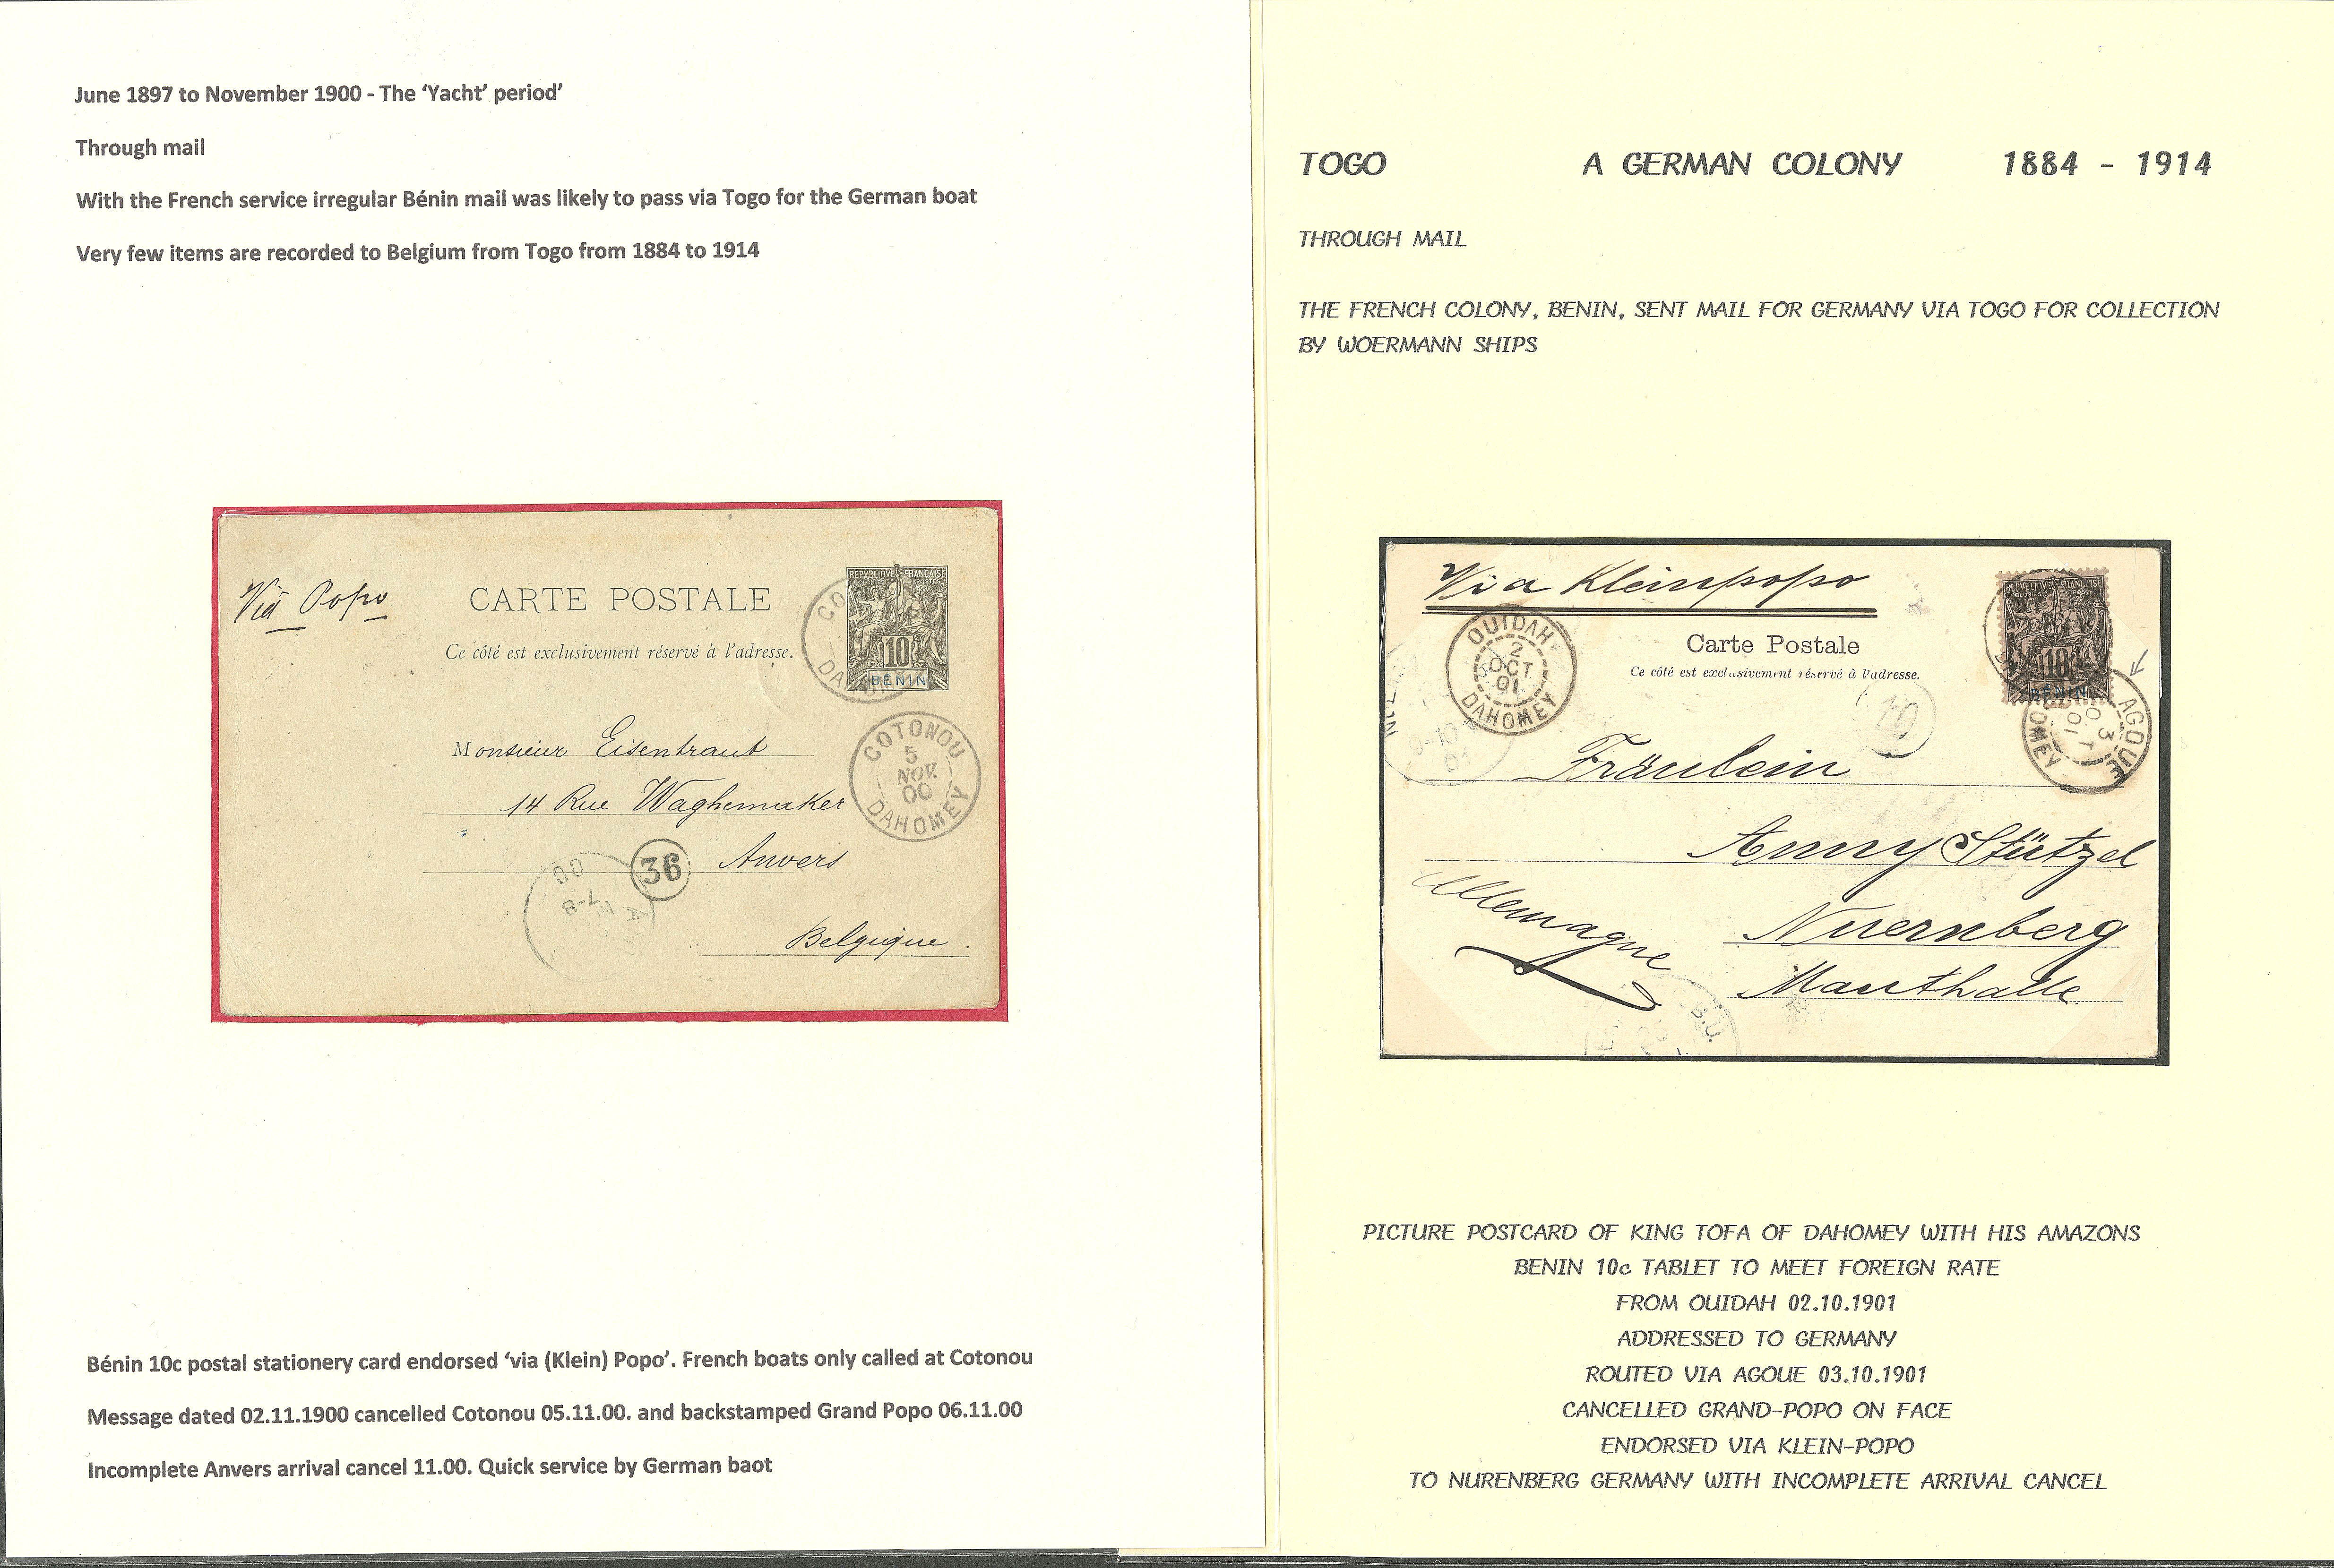 June 1897 to November 1900 - The ‘Yacht’ period’
Through mail
With the French service irregular Bénin mail was likely to pass via Togo for the German boat
Very few items are recorded to Belgium from Togo from 1884 to 1914
Via Popo
CARTE POSTALE
Ce côté est exclusivement réservé à l'adresse.
REPVBLIQVE FRANÇAISE
COLONIES POSTES
10
BÉNIN
COTONOU
5
NOV.
00
DAHOMEY
Monsieur Eisentraut
14 Rue Waghemaker
36
Anvers
7-8
00
Belgique.
Bénin 10c postal stationery card endorsed ‘via (Klein) Popo’. French boats only called at Cotonou
Message dated 02.11.1900 cancelled Cotonou 05.11.00. and backstamped Grand Popo 06.11.00
Incomplete Anvers arrival cancel 11.00. Quick service by German baot
TOGO A GERMAN COLONY 1884 - 1914
THROUGH MAIL
THE FRENCH COLONY, BENIN, SENT MAIL FOR GERMANY VIA TOGO FOR COLLECTION
BY WOERMANN SHIPS
Via Kleinpopo
OUIDAH
2
OCT
01
DAHOMEY
Carte Postale
Ce côté est exclusivement réservé à l'adresse.
10
BÉNIN
AGOUE
10
Fräulein
Anny Stützel
Allemagne
Nuernberg
Mauthalle
PICTURE POSTCARD OF KING TOFA OF DAHOMEY WITH HIS AMAZONS
BENIN 10c TABLET TO MEET FOREIGN RATE
FROM OUIDAH 02.10.1901
ADDRESSED TO GERMANY
ROUTED VIA AGOUE 03.10.1901
CANCELLED GRAND-POPO ON FACE
ENDORSED VIA KLEIN-POPO
TO NURENBERG GERMANY WITH INCOMPLETE ARRIVAL CANCEL